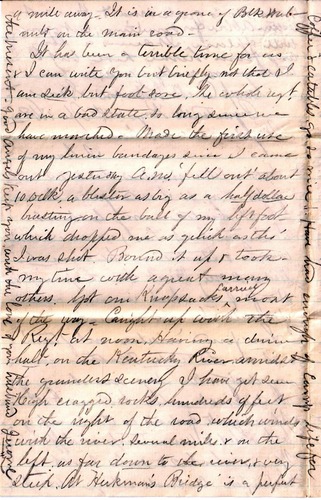 a mile away. It is in a grove of Blk Wal-
nuts on the main road -
It has been a terrible time for us
& I can write you but briefly, not that I
am sick, but foot sore. The whole regt.
are in a bad state so long since we
have marched - Made the first use
of my linen bandages since I came
out yesterday A.M. fell out about
10 o'clk, a blister as big as a half dollar
bursting on the ball of my left foot
which dropped me as quick as tho'
I was shot. Bound it up & took
my time with a great many
others. Got our Knapsacks carried most
of the way - Caught up with the
Regt at noon, Having a dinner
halt, on the Kentucky River amidst
the grandest scenery I have yet seen
High cragged rocks, hundreds of feet
on the right of the road, which winds
with the river, several miles & on the
left, as far down to the river, & very
steep. At Hickmans Bridge is a perfect
Coffee & eatables for mine. Have had enough of Camp life for
the present - God Keep you with love from your husband
George